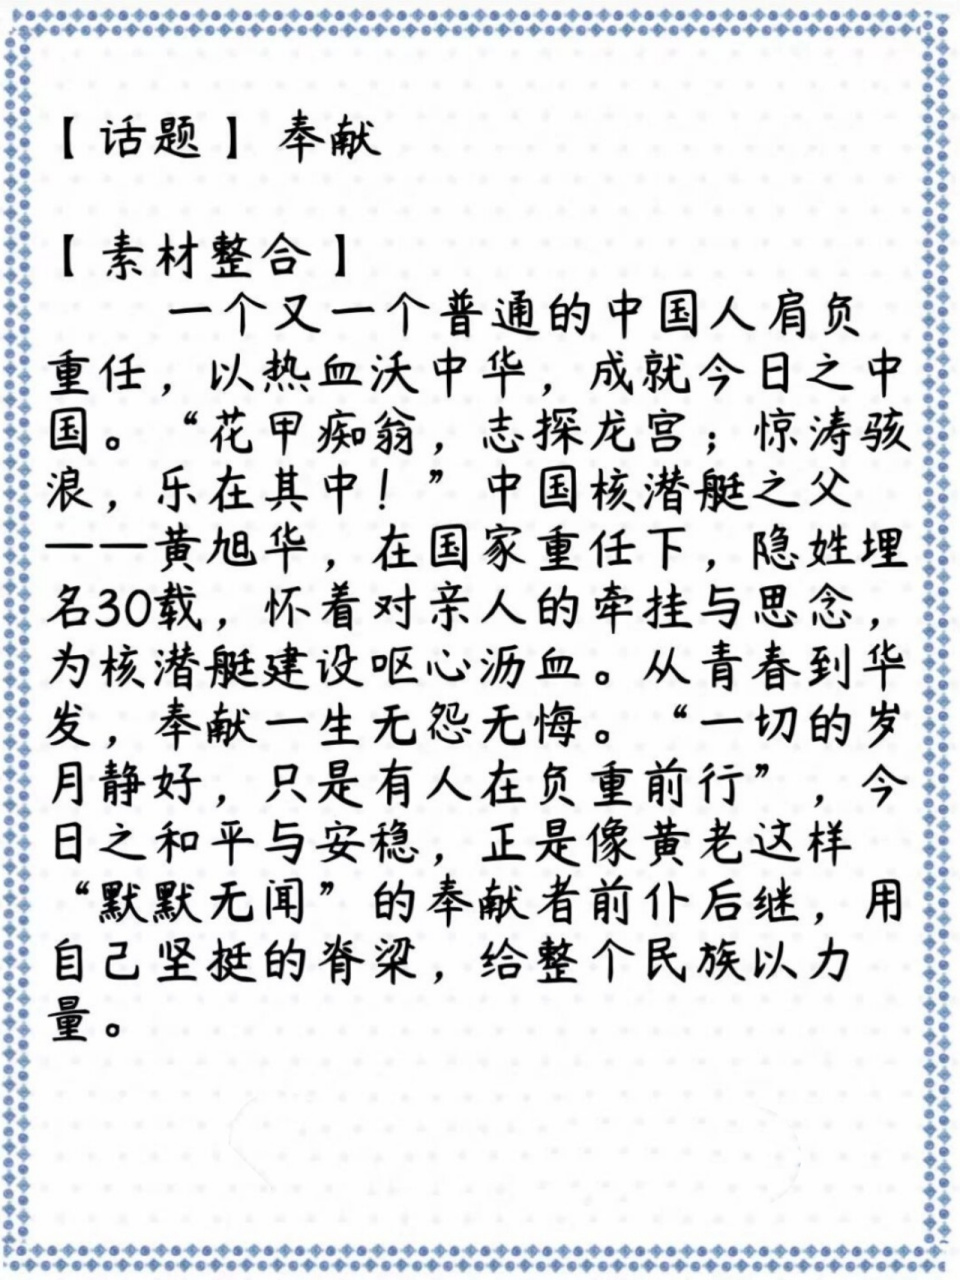 【话题】奉献
【素材整合】
一个又一个普通的中国人肩负
重任，以热血沃中华，成就今日之中
国。“花甲痴翁，志探龙宫；惊涛骇
浪，乐在其中！”中国核潜艇之父
——黄旭华，在国家重任下，隐姓埋
名30载，怀着对亲人的牵挂与思念，
为核潜艇建设呕心沥血。从青春到华
发，奉献一生无怨无悔。“一切的岁
月静好，只是有人在负重前行”，今
日之和平与安稳，正是像黄老这样
“默默无闻”的奉献者前仆后继，用
自己坚挺的脊梁，给整个民族以力
量。